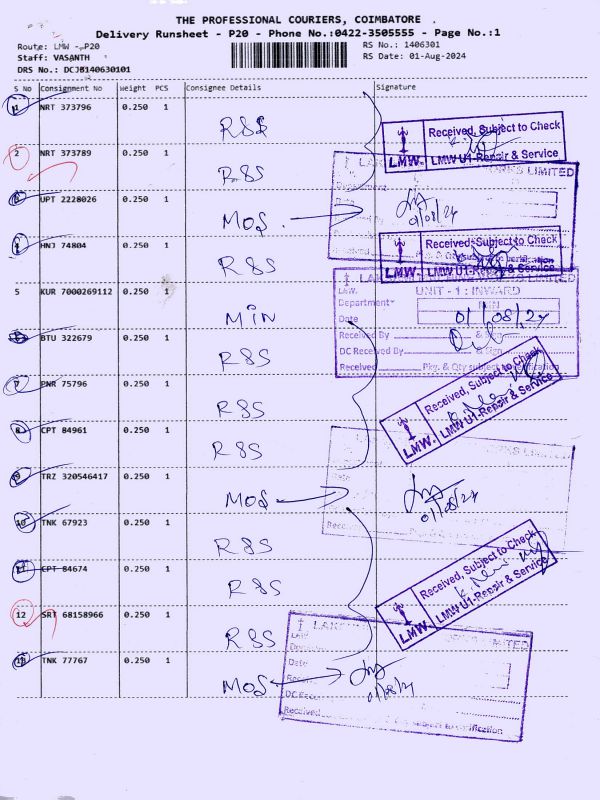 THE PROFESSIONAL COURIERS, COIMBATORE .
Delivery Runsheet - P20 - Phone No.:0422-3505555 - Page No.:1
Route: LMW - P20
RS No.: 1406301
Staff: VASANTH
RS Date: 01-Aug-2024
DRS No.: DCJB140630101
S No Consignment No Weight PCS Consignee Details Signature
1 NRT 373796 0.250 1 R&S
Received, Subject to Check
LMW. LMW U1-Repair & Service
2 NRT 373789 0.250 1 R&S
3 UPT 2228026 0.250 1 MOS
01/08/24
4 HNJ 74804 0.250 1 R&S
Received, Subject to Check
LMW. LMW U1-Repair & Service
5 KUR 7000269112 0.250 1 MIN
UNIT - 1 : INWARD
Department
Date 01/08/24
Received By & Sign
DC Received By & Sign
Received Pky. & Qty subject to verification
6 BTU 322679 0.250 1 R&S
7 PNR 75796 0.250 1 R&S
Received, Subject to Check
LMW. LMW U1-Repair & Service
8 CPT 84961 0.250 1 R&S
9 TRZ 320546417 0.250 1 MOS
01/08/24
10 TNK 67923 0.250 1 R&S
11 CPT 84674 0.250 1 R&S
Received, Subject to Check
LMW. LMW U1-Repair & Service
12 SRT 68158966 0.250 1 R&S
13 TNK 77767 0.250 1 MOS
Date
01/08/24
Received subject to verification